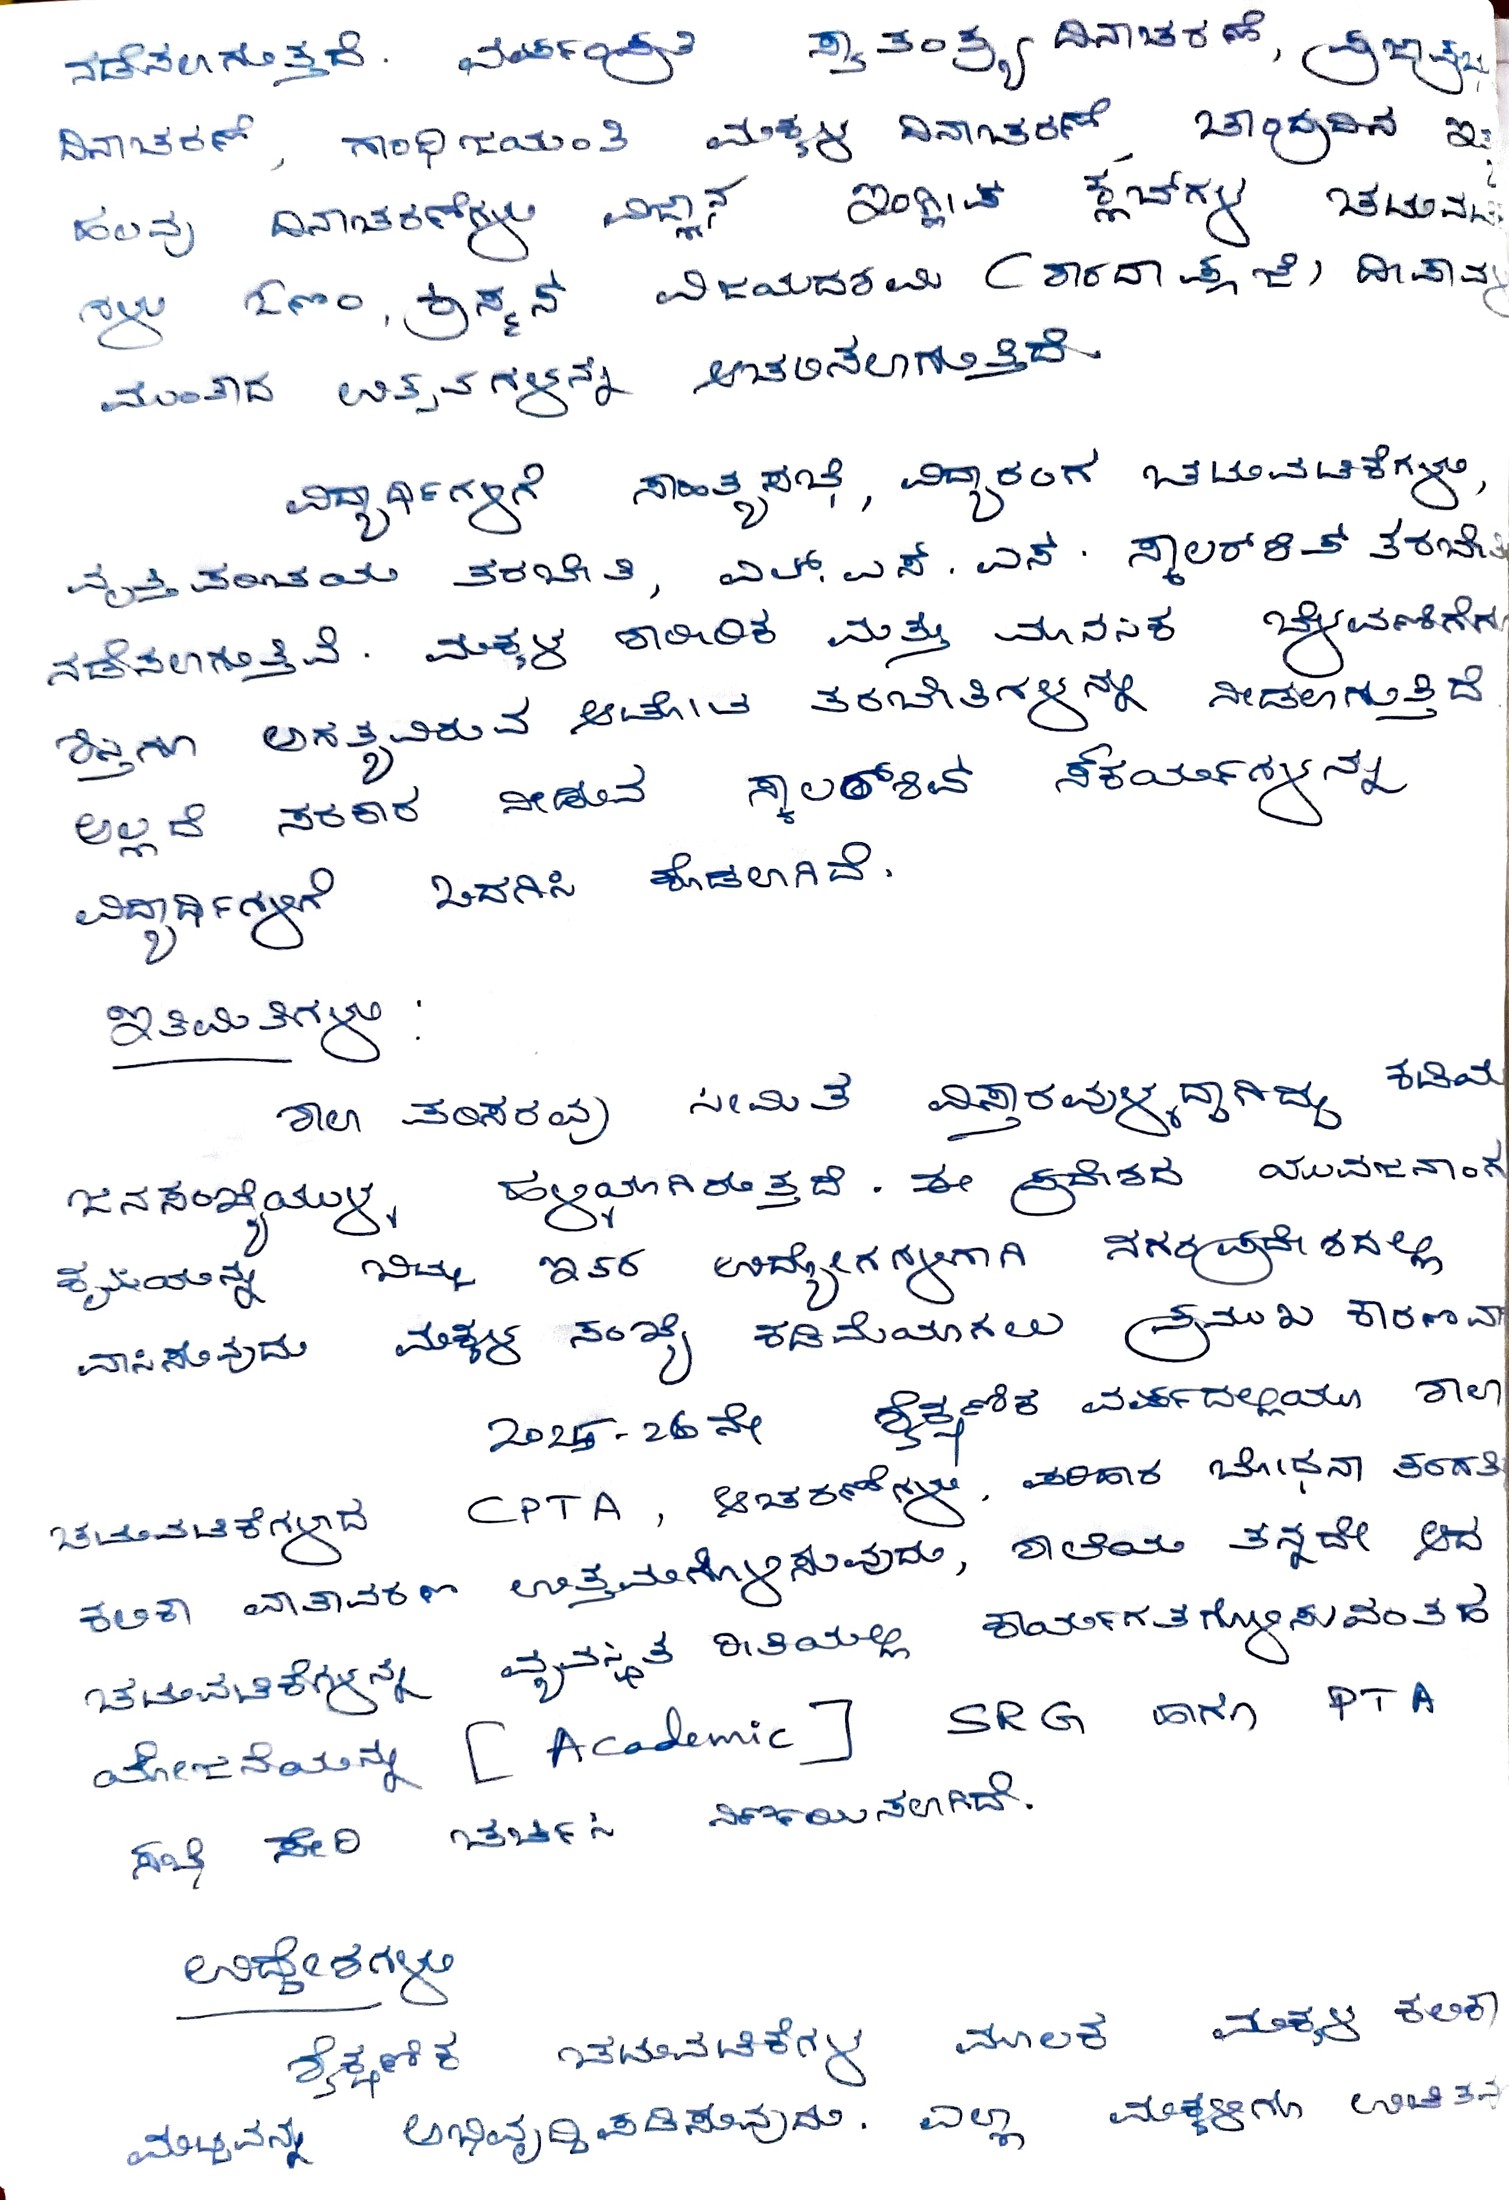 ನಡೆಸಲಾಗುತ್ತದೆ. ವರ್ಷಂಪ್ರತಿ ಸ್ವಾತಂತ್ರ್ಯ ದಿನಾಚರಣೆ,
ದಿನಾಚರಣೆ, ಗಾಂಧಿಜಯಂತಿ ಮಕ್ಕಳ ದಿನಾಚರಣೆ, ಚಾಂದ್ರದಿನ
ಹಲವು ದಿನಾಚರಣೆಗಳು ವಿಜ್ಞಾನ ಇಂಗ್ಲೀಷ್ ಕ್ಲಬ್‌ಗಳ
ಗಳು ಓಣಂ, ಕ್ರಿಸ್ಮಸ್ ವಿಜಯದಶಮಿ (ಶಾರದಾ ಪೂಜೆ)
ಮುಂತಾದ ಉತ್ಸವಗಳನ್ನು ಆಚರಿಸಲಾಗುತ್ತಿದೆ.
ವಿದ್ಯಾರ್ಥಿಗಳಿಗೆ ಸಾಹಿತ್ಯಸಭೆ, ವಿದ್ಯಾರಂಗ ಚಟುವಟಿಕೆಗಳು,
ವೃತ್ತಿ ಪರಿಚಯ ತರಬೇತಿ, ಎಲ್. ಎಸ್. ಎಸ್. ಸ್ಕಾಲರ್‌ಶಿಪ್ ತರಬೇತಿ
ನಡೆಸಲಾಗುತ್ತಿವೆ. ಮಕ್ಕಳ ಶಾರೀರಿಕ ಮತ್ತು ಮಾನಸಿಕ
ಶಿಸ್ತಿಗೂ ಅಗತ್ಯವಿರುವ ಆಟೋಟ ತರಬೇತಿಗಳನ್ನು ನೀಡಲಾಗುತ್ತಿದೆ
ಅಲ್ಲದೆ ಸರಕಾರ ನೀಡುವ ಸ್ಕಾಲರ್‌ಶಿಪ್ ಸೌಕರ್ಯಗಳನ್ನು
ವಿದ್ಯಾರ್ಥಿಗಳಿಗೆ ಒದಗಿಸಿ ಕೊಡಲಾಗಿದೆ.
ಇತಿಮಿತಿಗಳು :
ಶಾಲಾ ಪರಿಸರವು ಸೀಮಿತ ವಿಸ್ತಾರವುಳ್ಳದ್ದಾಗಿದ್ದು ಕಡಿಮೆ
ಜನಸಂಖ್ಯೆಯುಳ್ಳ ಹಳ್ಳಿಯಾಗಿರುತ್ತದೆ. ಈ ಪ್ರದೇಶದ ಯುವಜನಾಂಗ
ಕೃಷಿಯನ್ನು ಬಿಟ್ಟು ಇತರ ಉದ್ಯೋಗಗಳಿಗಾಗಿ ನಗರಪ್ರದೇಶದಲ್ಲಿ
ವಾಸಿಸುವುದು ಮಕ್ಕಳ ಸಂಖ್ಯೆ ಕಡಿಮೆಯಾಗಲು ಪ್ರಮುಖ ಕಾರಣವಾ
2025-26ನೇ ಶೈಕ್ಷಣಿಕ ವರ್ಷದಲ್ಲಿಯೂ ಶಾಲಾ
ಚಟುವಟಿಕೆಗಳಾದ CPTA, ಆಚರಣೆಗಳು, ಪರಿಹಾರ ಬೋಧನಾ ತರಗತಿ
ಕಲಿಕಾ ವಾತಾವರಣ ಉತ್ತಮಗೊಳಿಸುವುದು, ಶಾಲೆಯ ತನ್ನದೇ ಆದ
ಚಟುವಟಿಕೆಗಳನ್ನು ವ್ಯವಸ್ಥಿತ ರೀತಿಯಲ್ಲಿ ಕಾರ್ಯಗತಗೊಳಿಸುವಂತಹ
ಯೋಜನೆಯನ್ನು [Academic] SRG ಹಾಗೂ PTA
ಸಭೆ ಸೇರಿ ಚರ್ಚಿಸಿ ನಿರ್ಣಯಿಸಲಾಗಿದೆ.
ಉದ್ದೇಶಗಳು
ಶೈಕ್ಷಣಿಕ ಚಟುವಟಿಕೆಗಳ ಮೂಲಕ ಮಕ್ಕಳ ಕಲಿಕಾ
ಮಟ್ಟವನ್ನು ಅಭಿವೃದ್ಧಿಪಡಿಸುವುದು. ಎಲ್ಲಾ ಮಕ್ಕಳಿಗೂ